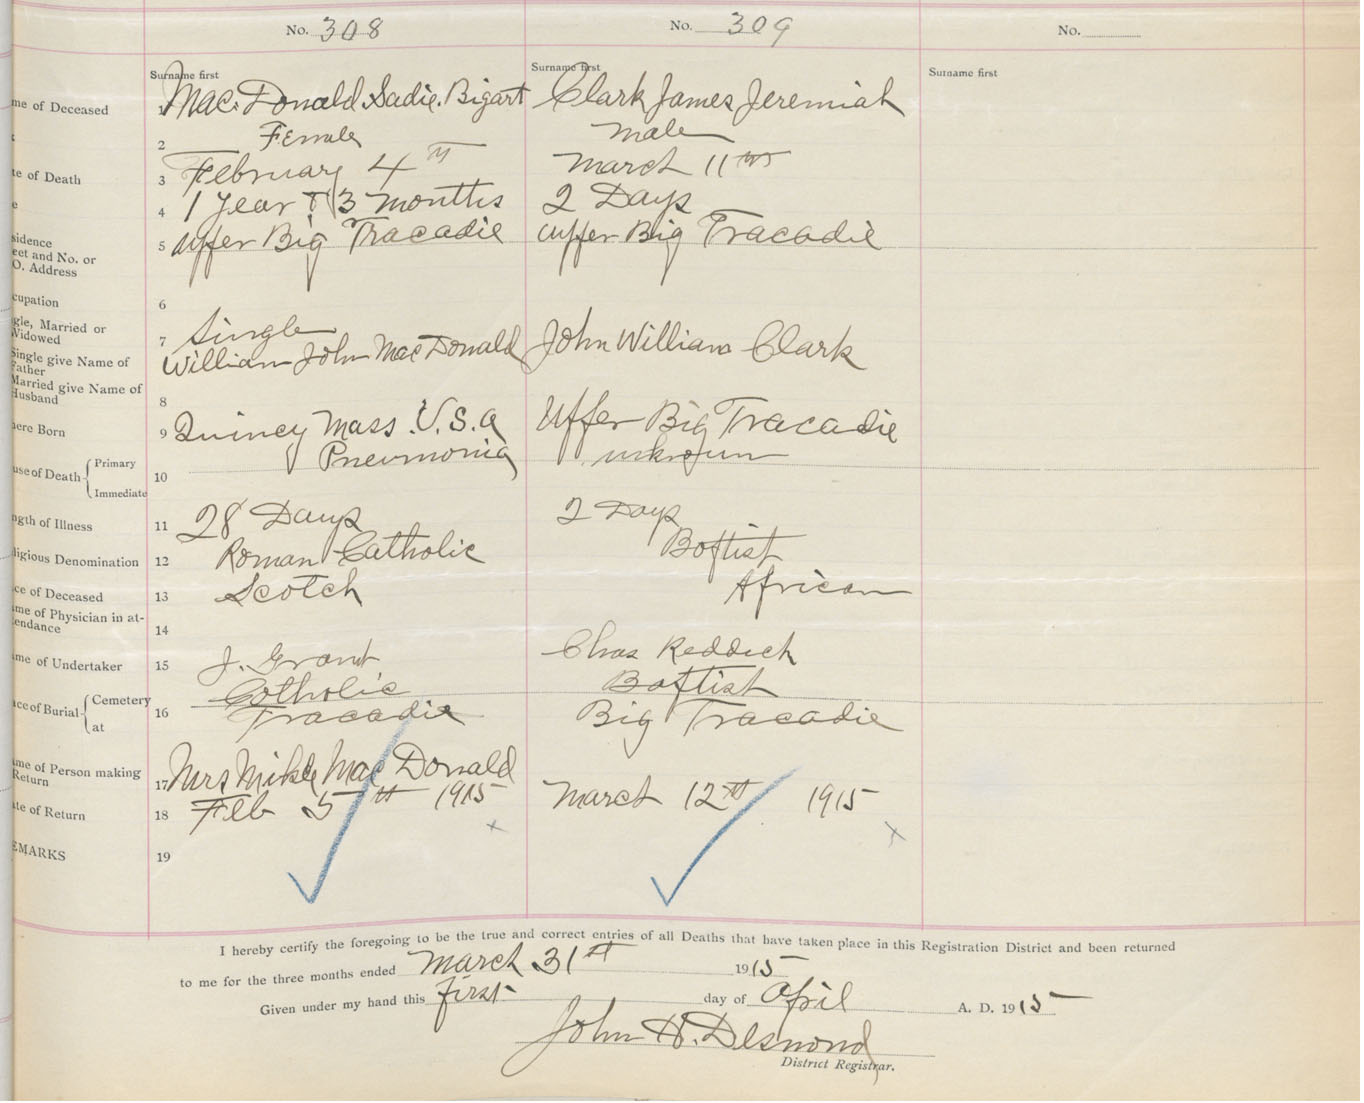 No. 308
No. 309
No.
Surname first
Surname first
Surname first
me of Deceased
1 MacDonald Sadie Bigart
Clark James Jeremiah
2 Female
male
te of Death
3 February 4th
March 11th
4 1 year & 3 months
2 Days
sidence
eet and No. or
O. Address
5 upper Big Tracadie
upper Big Tracadie
cupation
6
gle, Married or
Widowed
7 Single
Single give Name of
Father
William John MacDonald
John William Clark
Married give Name of
Husband
8
ere Born
9 Quincy Mass U.S.a
Upper Big Tracadie
use of Death
Primary
Immediate
10 Pneumonia
unknown
ngth of Illness
11 28 Days
2 Days
ligious Denomination
12 Roman Catholic
Baptist
ce of Deceased
13 Scotch
African
me of Physician in at-
endance
14
me of Undertaker
15 J. Grant
Chas Reddick
ace of Burial
Cemetery
at
16 Catholic
Tracadie
Baptist
Big Tracadie
me of Person making
Return
17 Mrs Mike MacDonald
te of Return
18 Feb 5th 1915
March 12th 1915
EMARKS
19
I hereby certify the foregoing to be the true and correct entries of all Deaths that have taken place in this Registration District and been returned
to me for the three months ended March 31st 1915
Given under my hand this first day of April A. D. 1915
John H. Desmond
District Registrar.